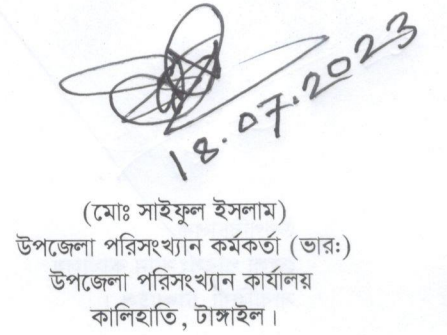 18.07.2023
(মোঃ সাইফুল ইসলাম)
উপজেলা পরিসংখ্যান কর্মকর্তা (ভার:)
উপজেলা পরিসংখ্যান কার্যালয়
কালিহাতি, টাঙ্গাইল।